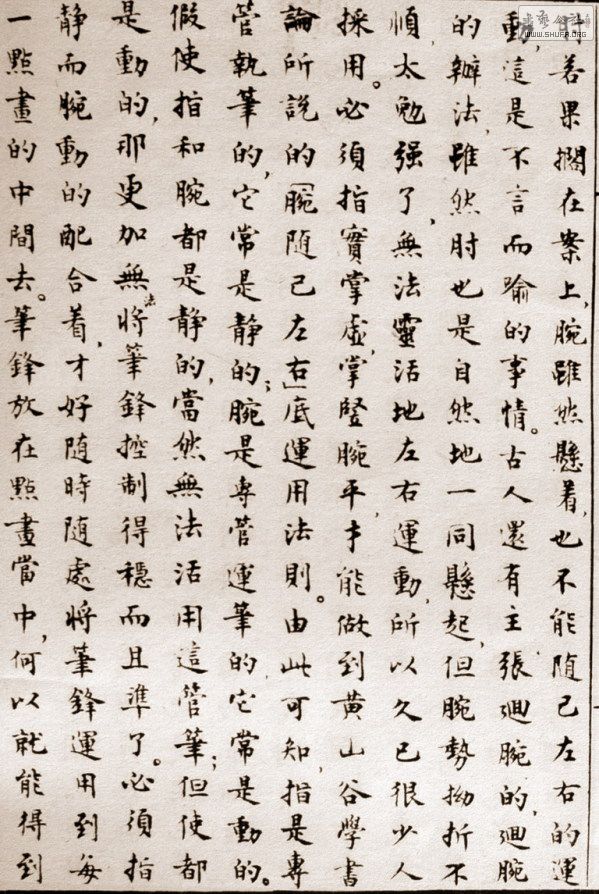 肘若果擱在案上,腕雖然懸着,也不能随己左右的運
動,這是不言而喻的事情。古人還有主張迴腕的,迴腕
的辦法,雖然肘也是自然地一同懸起,但腕勢拗折不
順,太勉强了,無法靈活地左右運動,所以久已很少人
採用。必須指實掌虛,掌豎腕平,才能做到黄山谷學書
論所說的「腕随己左右」底運用法則。由此可知,指是專
管執筆的,它常是静的;腕是專管運筆的,它常是動的。
假使指和腕都是静的,當然無法活用這管筆;但使都
是動的,那更加無法將筆鋒控制得穩而且準了。必須指
静而腕動的配合着,才好随時随處將筆鋒運用到每
一點畫的中間去。筆鋒放在點畫當中,何以就能得到
WWW.SHUFA.ORG